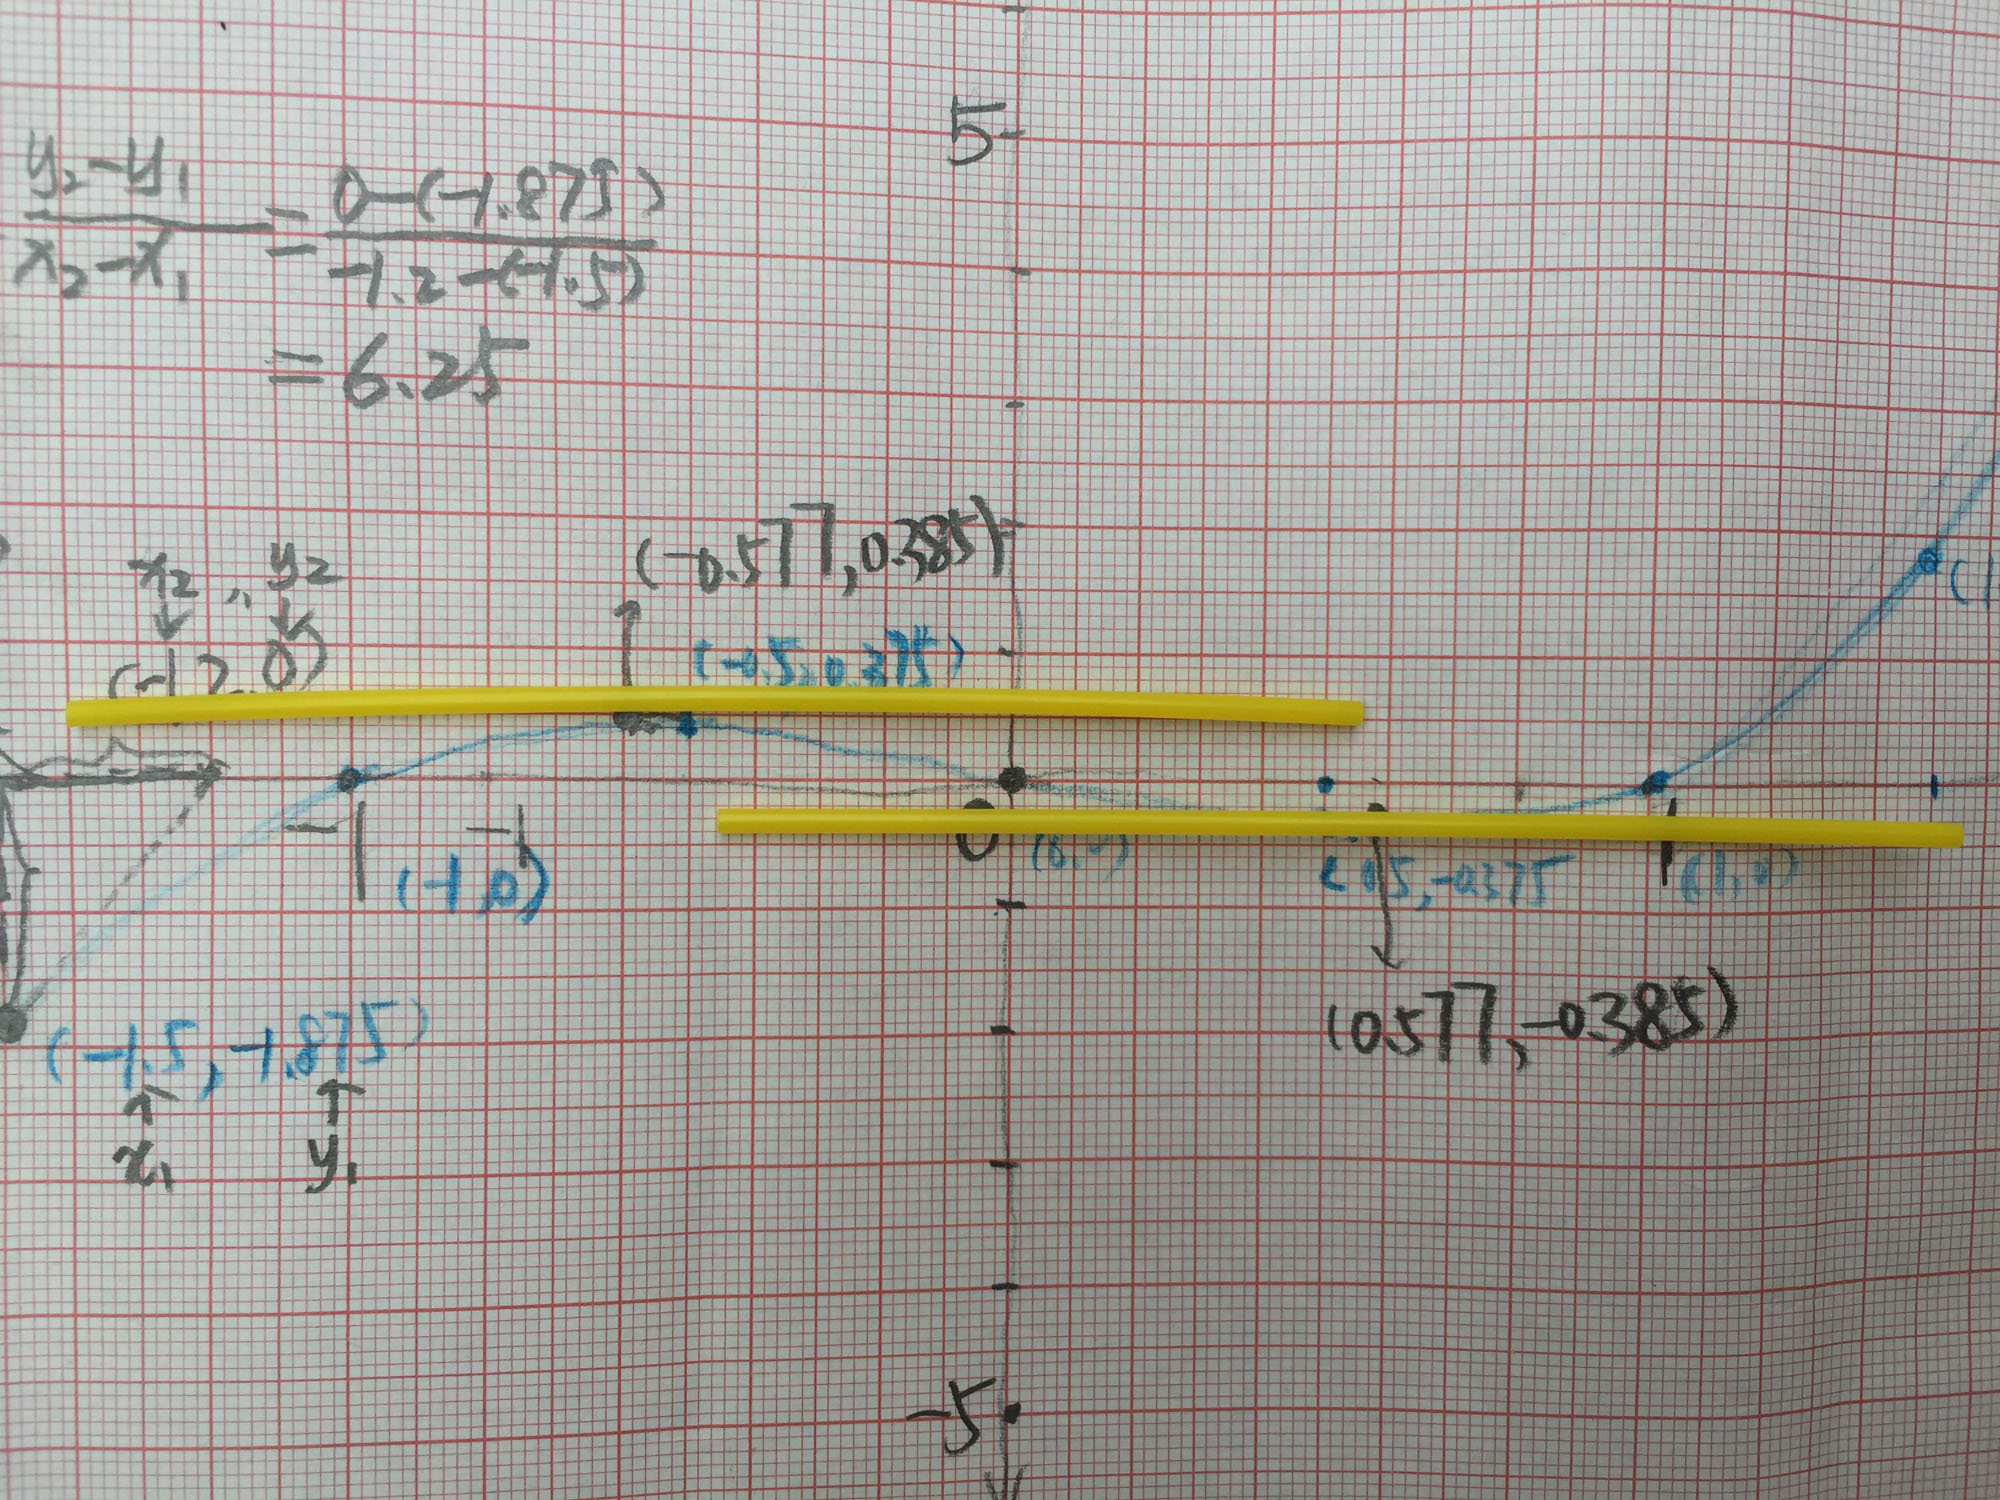 5
y₂-y₁ / x₂-x₁ = 0-(-1.875) / -1.2-(-1.5)
= 6.25
(-0.577, 0.385)
x₂, y₂
(-1.2, 0)
(-0.5, 0.375)
-1
(-1, 0)
0
(0,0)
(0.5, -0.375
1
(1,0)
(1
(0.577, -0.385)
(-1.5, -1.875)
x₁ y₁
-5